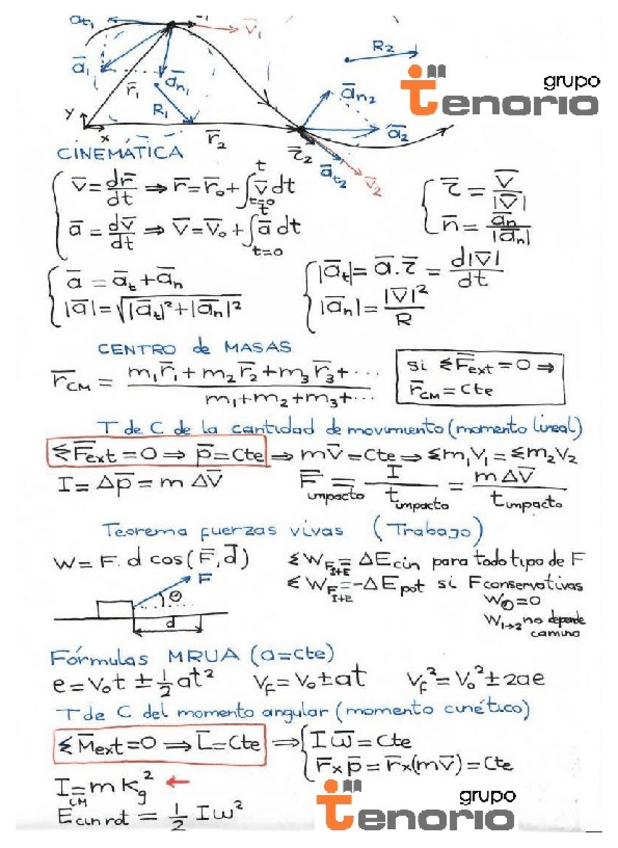 a̅t₁ v̅₁
a̅₁ a̅n₁ r̅₁ R₁ R₂ a̅n₂ a̅₂
grupo
Tenorio
Y x r̅₂ τ̅₂ a̅t₂ v̅₂
CINEMÁTICA
v̅ = dr̅/dt ⇒ r̅ = r̅₀ + ∫_{t=0}^{t} v̅ dt
a̅ = dv̅/dt ⇒ v̅ = v̅₀ + ∫_{t=0}^{t} a̅ dt
τ̅ = v̅/|v̅|
n̅ = a̅n/|a̅n|
a̅ = a̅t + a̅n
|a̅| = √(|a̅t|² + |a̅n|²)
|a̅t| = a̅ . τ̅ = d|v̅|/dt
|a̅n| = |v̅|²/R
CENTRO de MASAS
r̅CM = (m₁r̅₁ + m₂r̅₂ + m₃r̅₃ + ...)/(m₁ + m₂ + m₃ + ...)
si ΣF̅ext = 0 ⇒
r̅CM = cte
T de C de la cantidad de movimiento (momento lineal)
ΣF̅ext = 0 ⇒ p̅ = cte ⇒ m v̅ = cte ⇒ Σm₁v₁ = Σm₂v₂
I = Δp̅ = m Δv̅ F̅impacto = I/t impacto = mΔv̅/t impacto
Teorema fuerzas vivas (Trabajo)
W = F. d cos(F̅, d̅) ΣW_F I+E = ΔEcin para todo tipo de F
ΣW_F I+E = -ΔEpot si F conservativas
W = 0
W₁→₂ no depende
camino
F θ
d
Fórmulas MRUA (a=cte)
e = v₀t ± ½at² vF = v₀ ± at vF² = v₀² ± 2ae
T de C del momento angular (momento cinético)
ΣM̅ext = 0 ⇒ L̅ = cte ⇒ I ω̅ = cte
r̅ x p̅ = r̅ x (m v̅) = cte
I CM = m kg² ←
Ecin rot = ½ Iω²
grupo
Tenorio